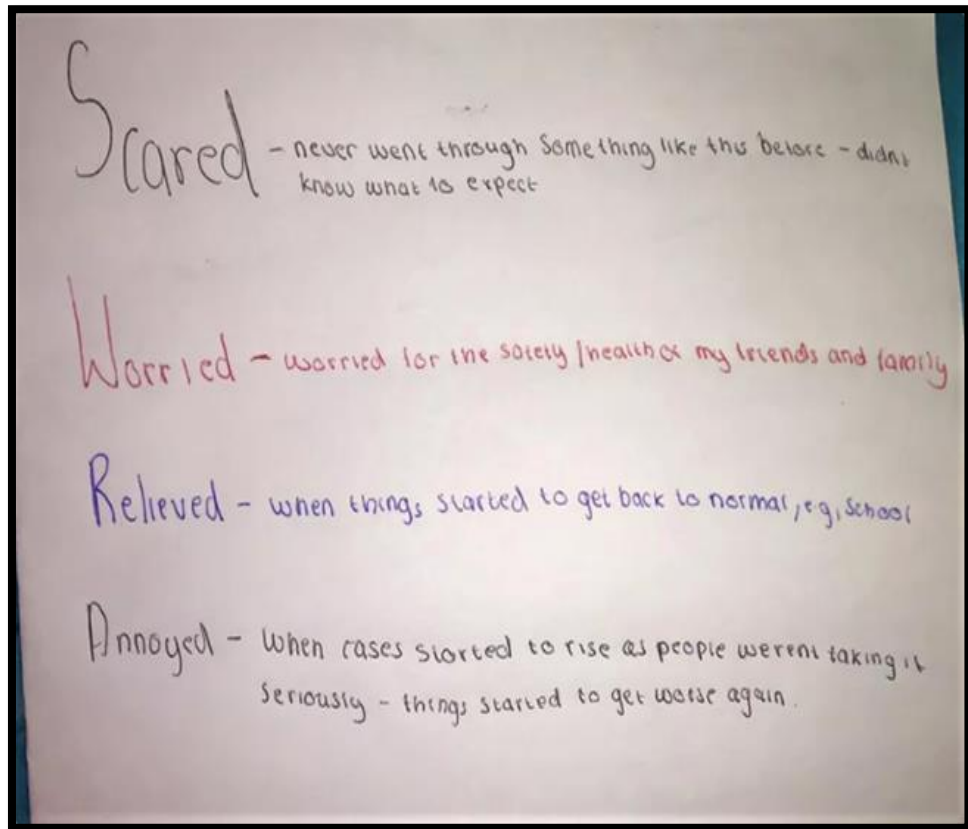 Scared - never went through something like this before - didnt
know what to expect
Worried - worried for the safety/health of my friends and family
Relieved - when things started to get back to normal, e.g, school
Annoyed - when cases started to rise as people werent taking it
seriously - things started to get worse again.